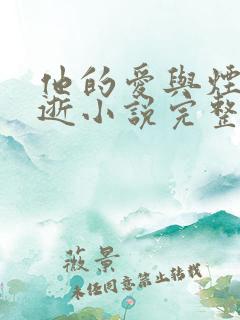 他的愛與煙
逝小說完整
薇景
未经同意禁止转载